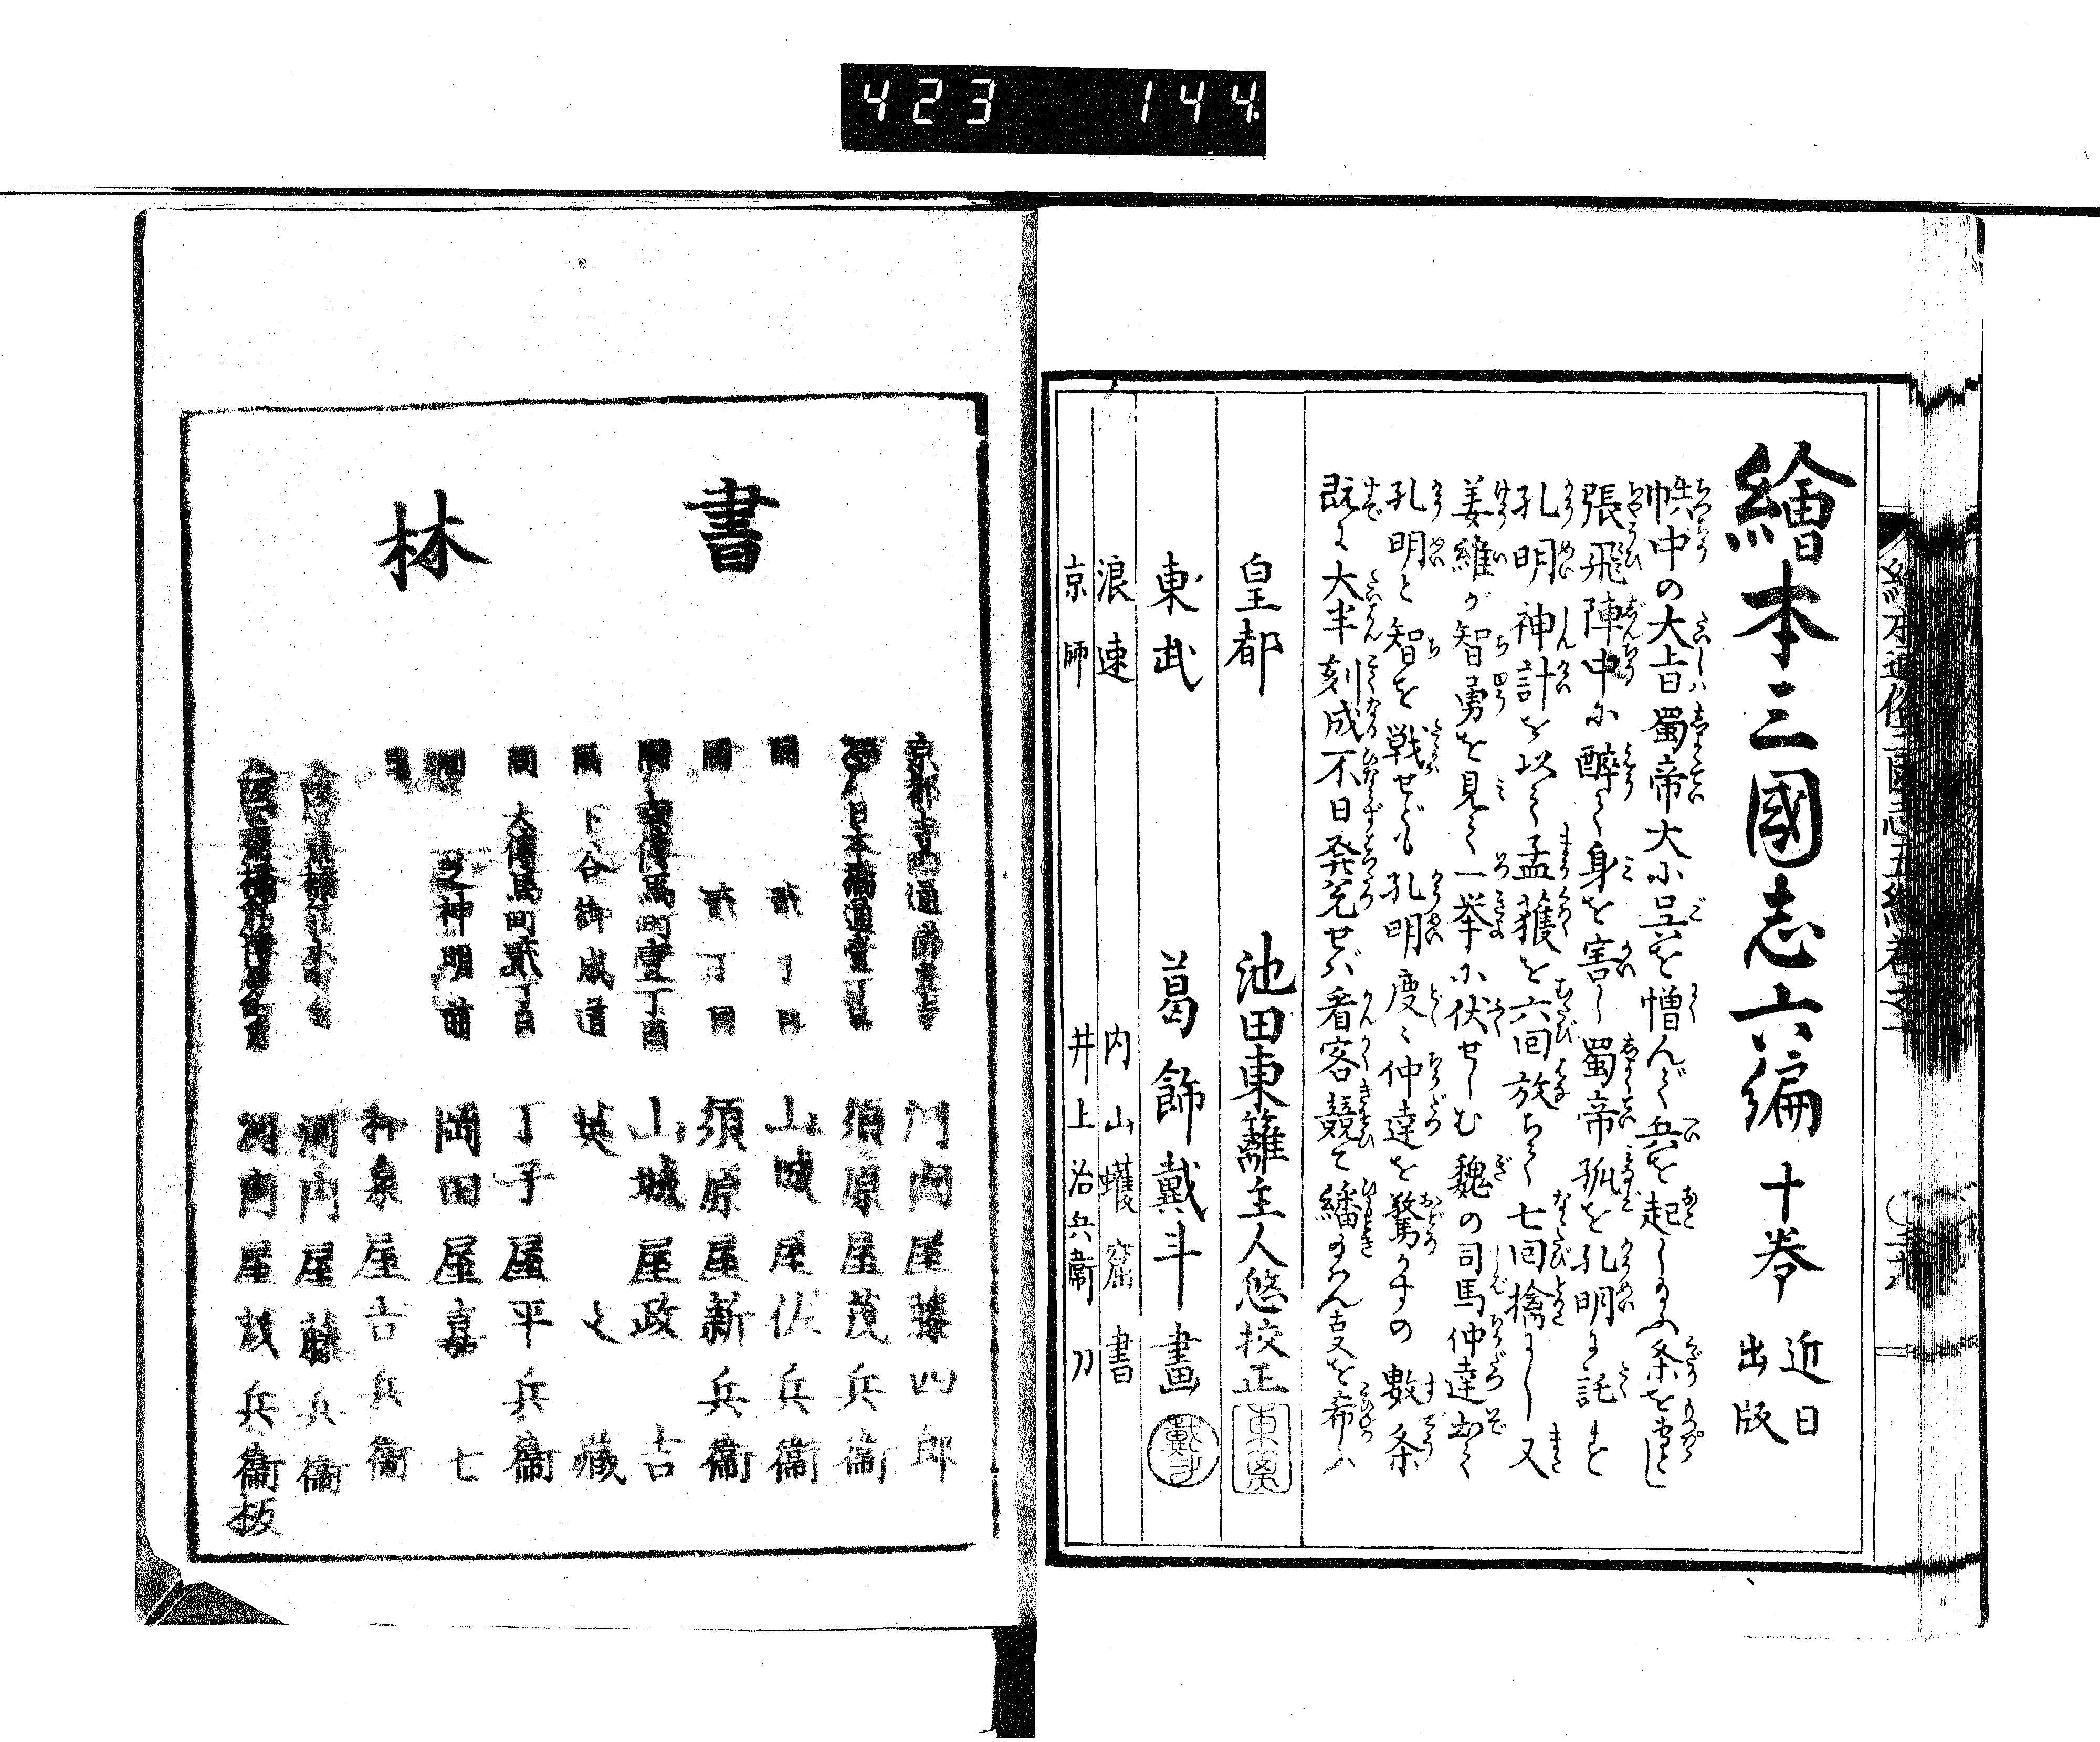 423 144
繪本三國志六編 十巻 近日出版
帙中の大旨ハ蜀帝大に呉を憎んで兵を起しゝ条を
張飛陣中に醉て身を害し蜀帝孤を孔明に託す
孔明神計を以て孟獲を六囘放ちて七囘擒にし又
姜維が智勇を見て一挙に伏せしむ魏の司馬仲達
孔明と智を戦せども孔明度ゝ仲達を驚かすの數条
既に大半刻成不日発兌せバ看客競て繙
皇都 池田東籬主人悠挍正
東武 葛飾戴斗畫 戴斗
浪速 内山蠖窟書
京師 井上治兵衞刀
書林
京都寺町通 河内屋藤四郎
江戸日本橋通壹丁目 須原屋茂兵衞
同 貳丁目 山城屋佐兵衞
同 貳丁目 須原屋新兵衞
同 壹丁目 山城屋政吉
同 下谷御成道 英文藏
同 大傳馬町貳丁目 丁子屋平兵衞
同 芝神明前 岡田屋嘉七
同 和泉屋吉兵衞
河内屋藤兵衞
河内屋茂兵衞板